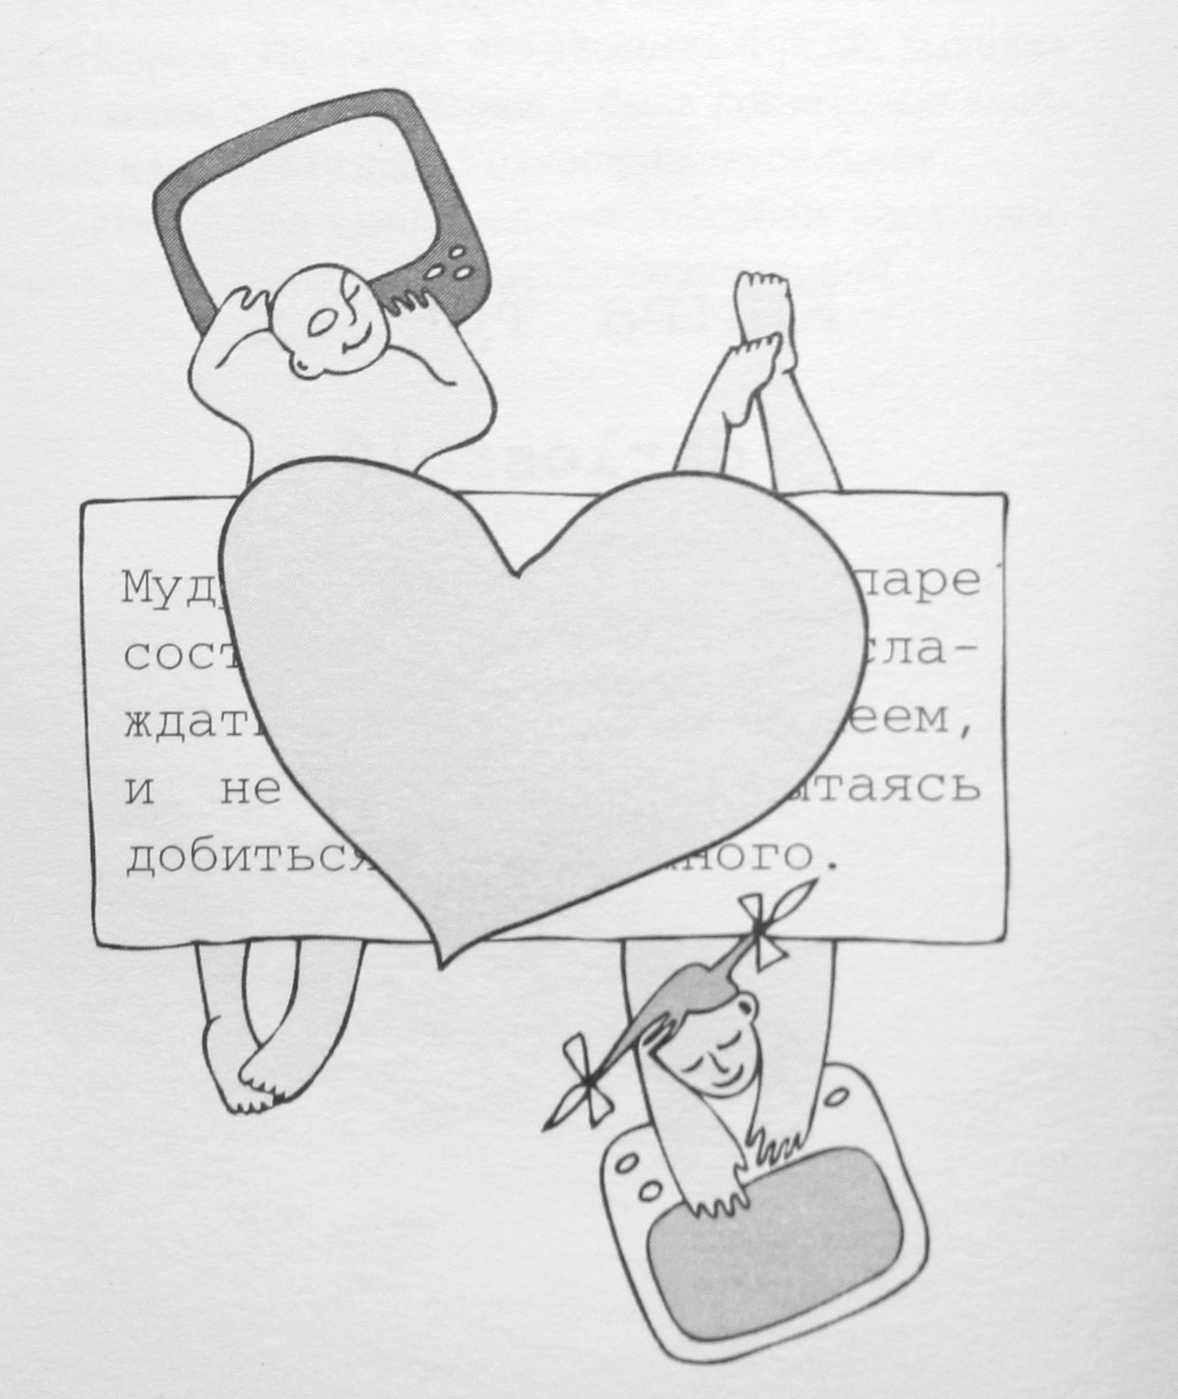 Муд паре
сост сла-
ждать еем,
и не таясь
добиться ного.